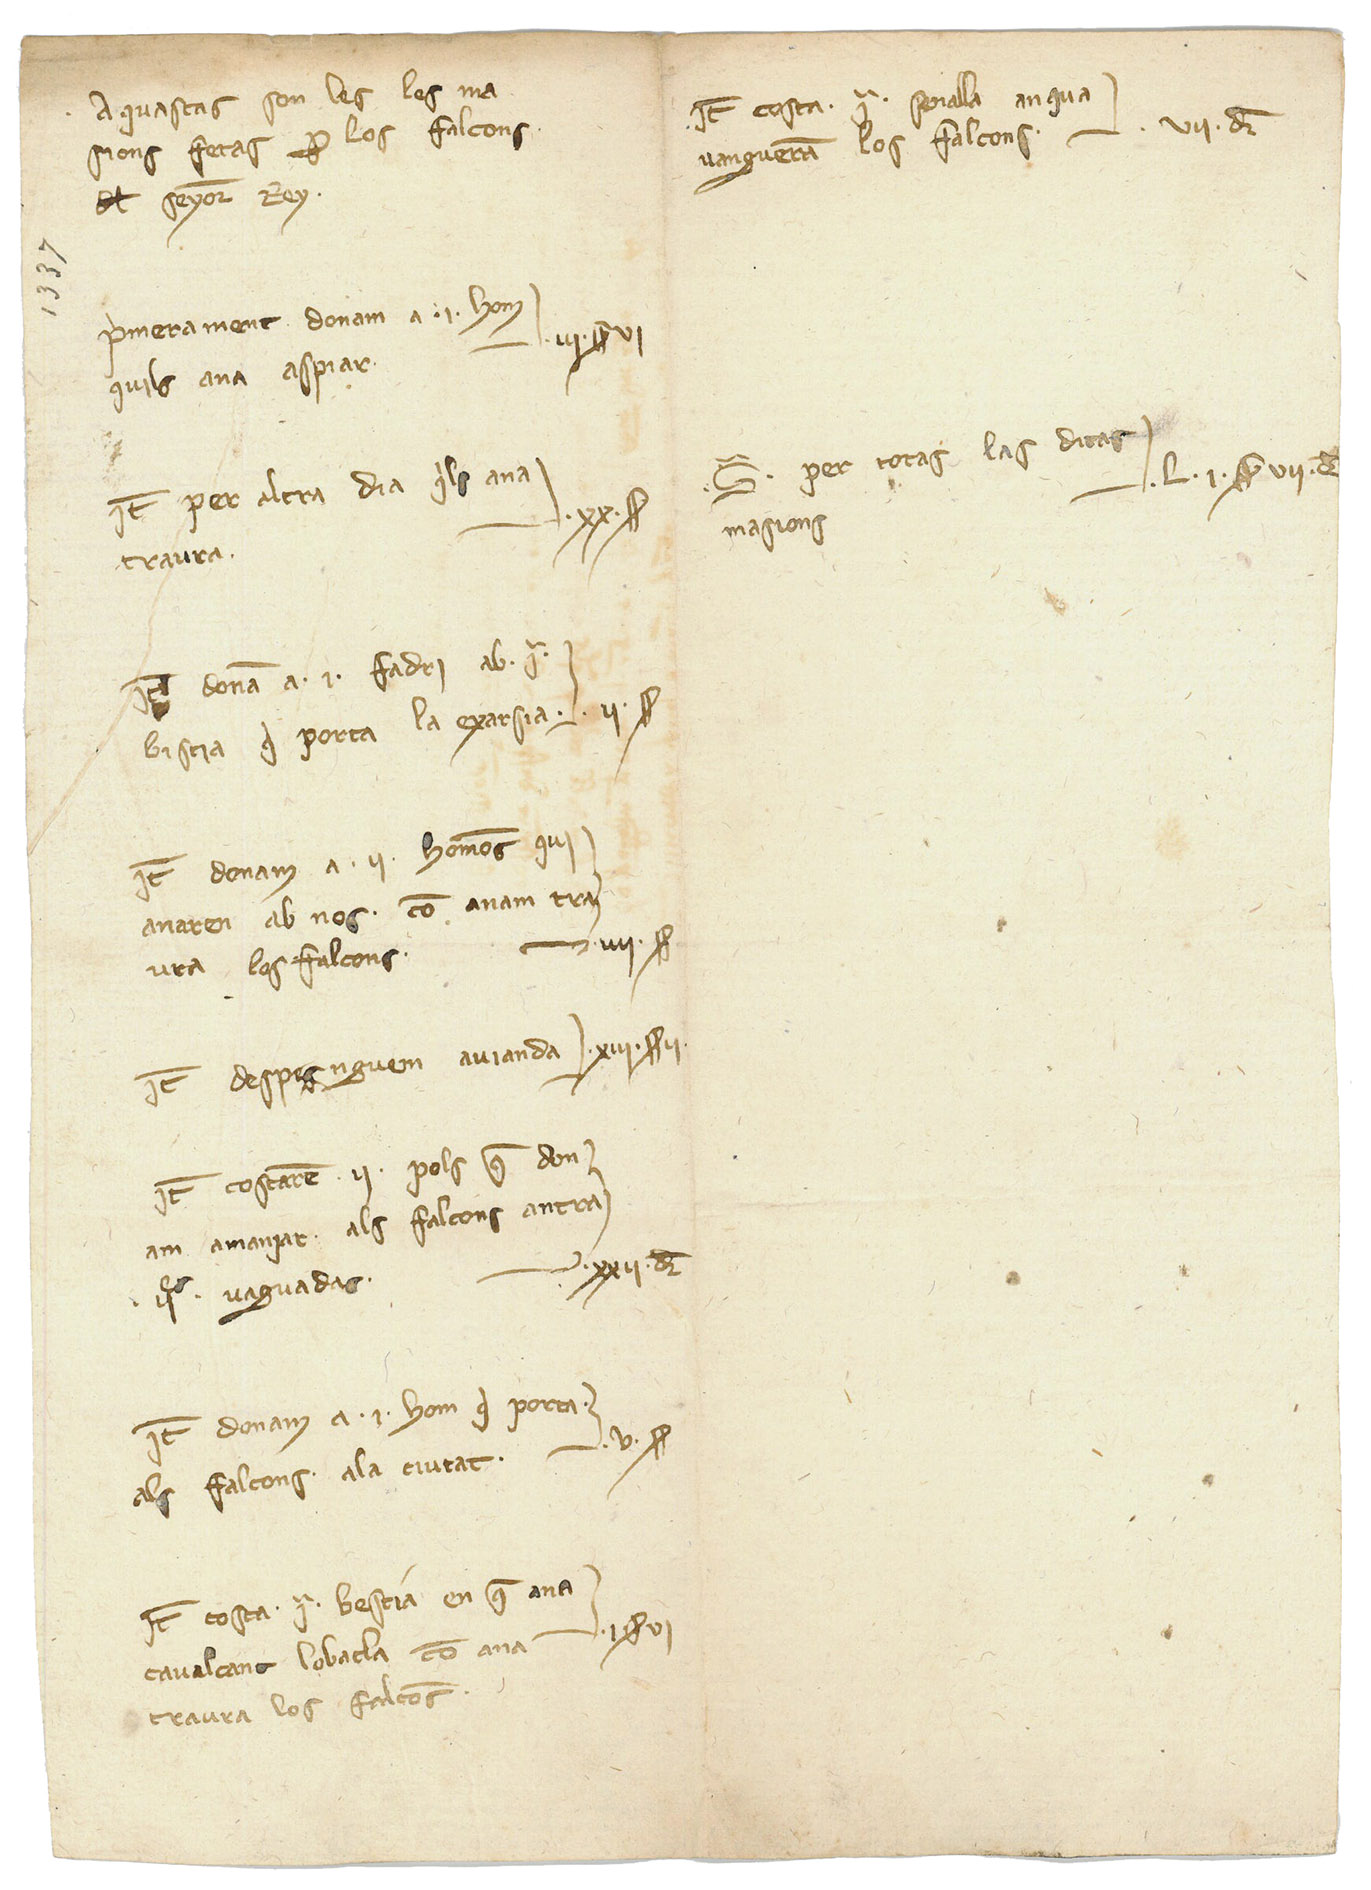 Aquastas son les les ma
sions fetas ꝑ los falcons
del seyor Rey.
1337
pmerament donam a .i. hom
quils ana aspiar. .iii. ss vi
It per altra dia qls ana
traura. .xx. ss
It donā a .i. fadri ab .iª.
bistia q porta la exarsia. .ii. ss
It donam a .ii. homōs qui
anaren ab nos. cō anam tra
ura los falcons. .vii. ss
It despenguem avianda .xiii. ss ii.
It costarē .ii. pols q̄ don
am amanjar als falcons antra
.ii.es vaguadas. .xxii. dr
It donam a .i. hom q porta
als falcons. ala ciutat. .v. ss
It costa .iª. bestia en q̄ ana
cavalcant lobatla cō ana .i. ss vi
traura los falcōs.
It costa .iª. senalla anqua
vanguerā los falcons. .vii. dr
.Sª. per totas las ditas
masions .L.i. ss vii. dr